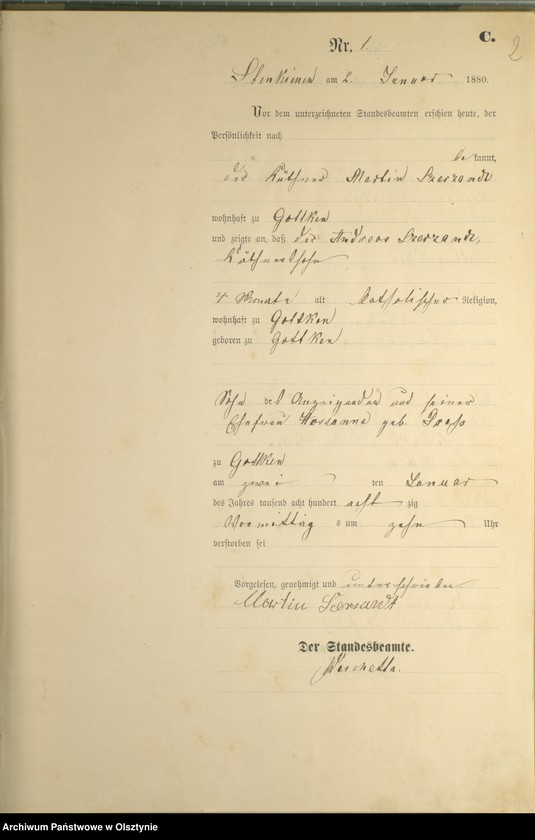 C.
2
Nr. 1
am 2. Januar 1880.
Vor dem unterzeichneten Standesbeamten erschien heute, der
Persönlichkeit nach
bekannt,
der Käthner Martin
wohnhaft zu Gottken
und zeigte an, daß der Andreas
Käthnersohn
4 Monate alt katholischer Religion,
wohnhaft zu Gottken
geboren zu Gottken
Sohn des Anzeigenden und seiner
Ehefrau Marianna geb.
zu Gottken
am zwei ten Januar
des Jahres tausend acht hundert acht zig
Vormittags um zehn Uhr
verstorben sei
Vorgelesen, genehmigt und unterschrieben
Martin
Der Standesbeamte.
Archiwum Państwowe w Olsztynie